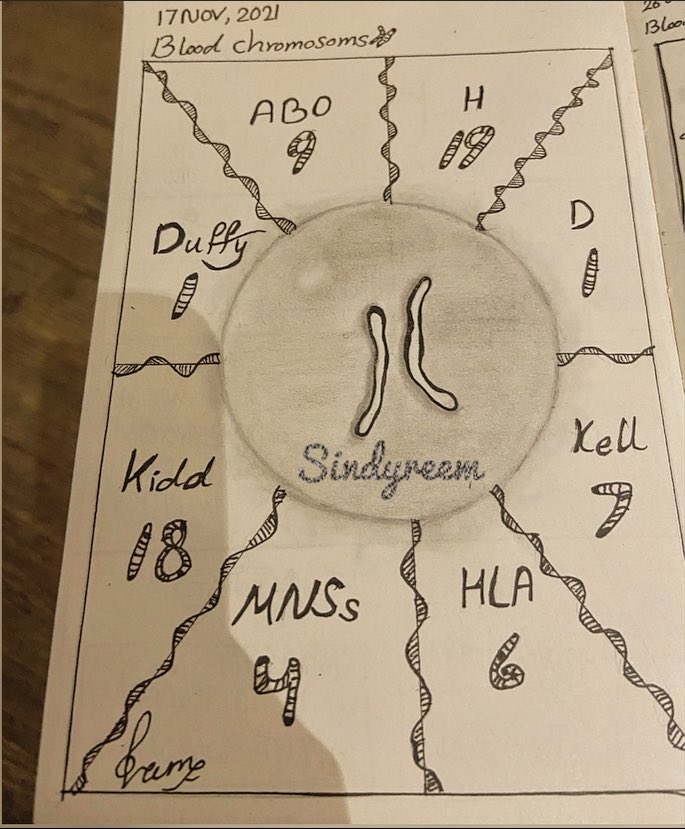 17 NOV, 2021
Blood chromosoms
ABO
9
H
19
D
1
Kell
7
HLA
6
MNSs
4
Kidd
18
Duffy
1
Sindyreem
Bloo